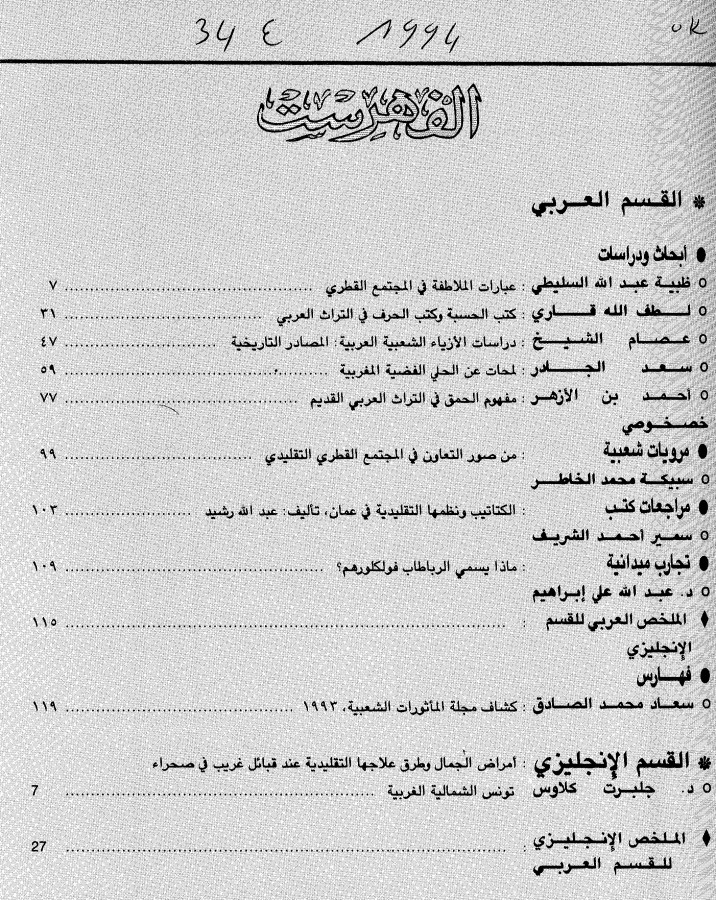 34 ع 1994 OK
الفهرست
* القسم العربي
● ابحاث ودراسات
○ ظبية عبد الله السليطي : عبارات الملاطفة في المجتمع القطري ........ ٧
○ لطف الله قاري : كتب الحسبة وكتب الحرف في التراث العربي ........ ٣١
○ عصام الشيخ : دراسات الأزياء الشعبية العربية: المصادر التاريخية ........ ٤٧
○ سعد الجادر : لمحات عن الحلي الفضية المغربية ........ ٥٩
○ أحمد بن الأزهر : مفهوم الحمق في التراث العربي القديم ........ ٧٧
خصخوصي
● مرويات شعبية : من صور التعاون في المجتمع القطري التقليدي ........ ٩٩
○ سبيكة محمد الخاطر
● مراجعات كتب : الكتاتيب ونظمها التقليدية في عمان، تأليف: عبد الله رشيد ........ ١٠٣
○ سمير أحمد الشريف
● تجارب ميدانية : ماذا يسمي الرباطاب فولكلورهم؟ ........ ١٠٩
○ د. عبد الله علي إبراهيم
♦ الملخص العربي للقسم : ........ ١١٥
الإنجليزي
● فهارس
○ سعاد محمد الصادق : كشاف مجلة المأثورات الشعبية، ١٩٩٣ ........ ١١٩
* القسم الإنجليزي : أمراض الجمال وطرق علاجها التقليدية عند قبائل غريب في صحراء
○ د. جلبرت كلاوس تونس الشمالية الغربية ........ 7
♦ الملخص الإنجليزي : ........ 27
للقسم العربي